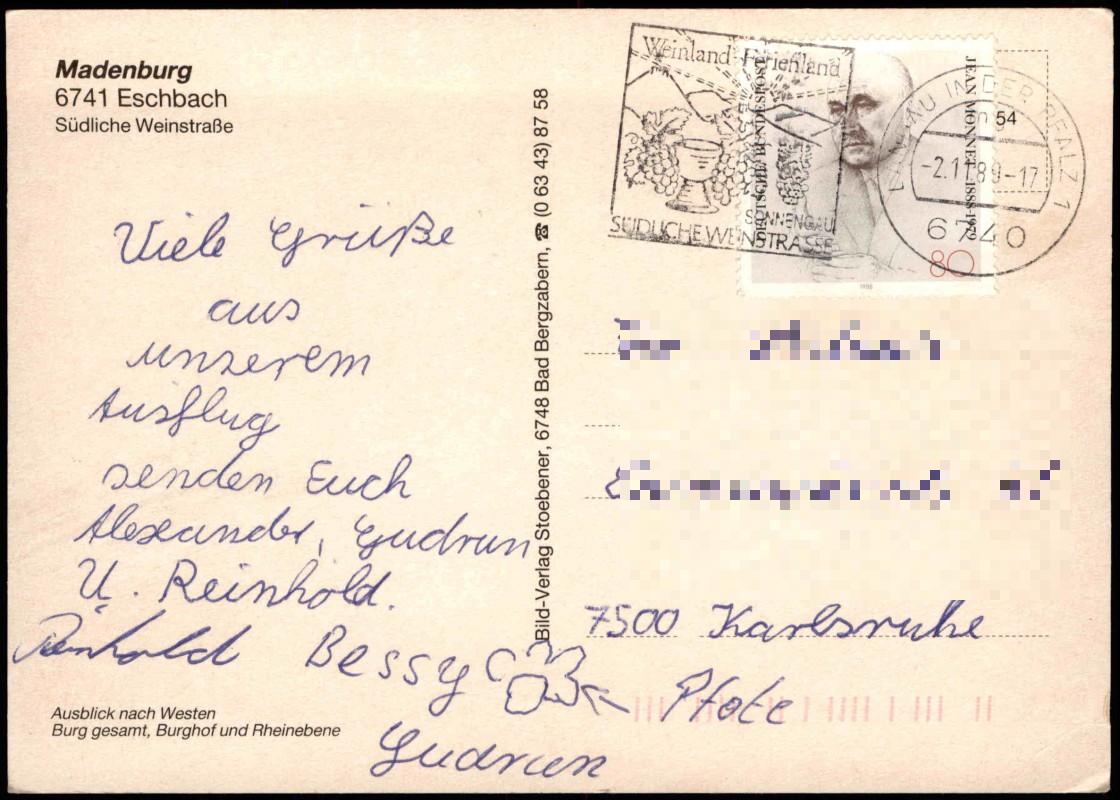 Madenburg
6741 Eschbach
Südliche Weinstraße
Viele Grüße
aus
unserem
Ausflug
senden Euch
Alexander, Gudrun
U. Reinhold.
Reinhold Bessy
Pfote
Gudrun
Ausblick nach Westen
Burg gesamt, Burghof und Rheinebene
Bild-Verlag Stoebener, 6748 Bad Bergzabern, ☎ (0 63 43) 87 58
Weinland-Ferienland
SONNENGAU
SÜDLICHE WEINSTRASSE
DEUTSCHE BUNDESPOST
JEAN MONNET 1888-1979
80
1988
LANDAU IN DER PFALZ 1
-2.11.89-17
6740
n 54
7500 Karlsruhe